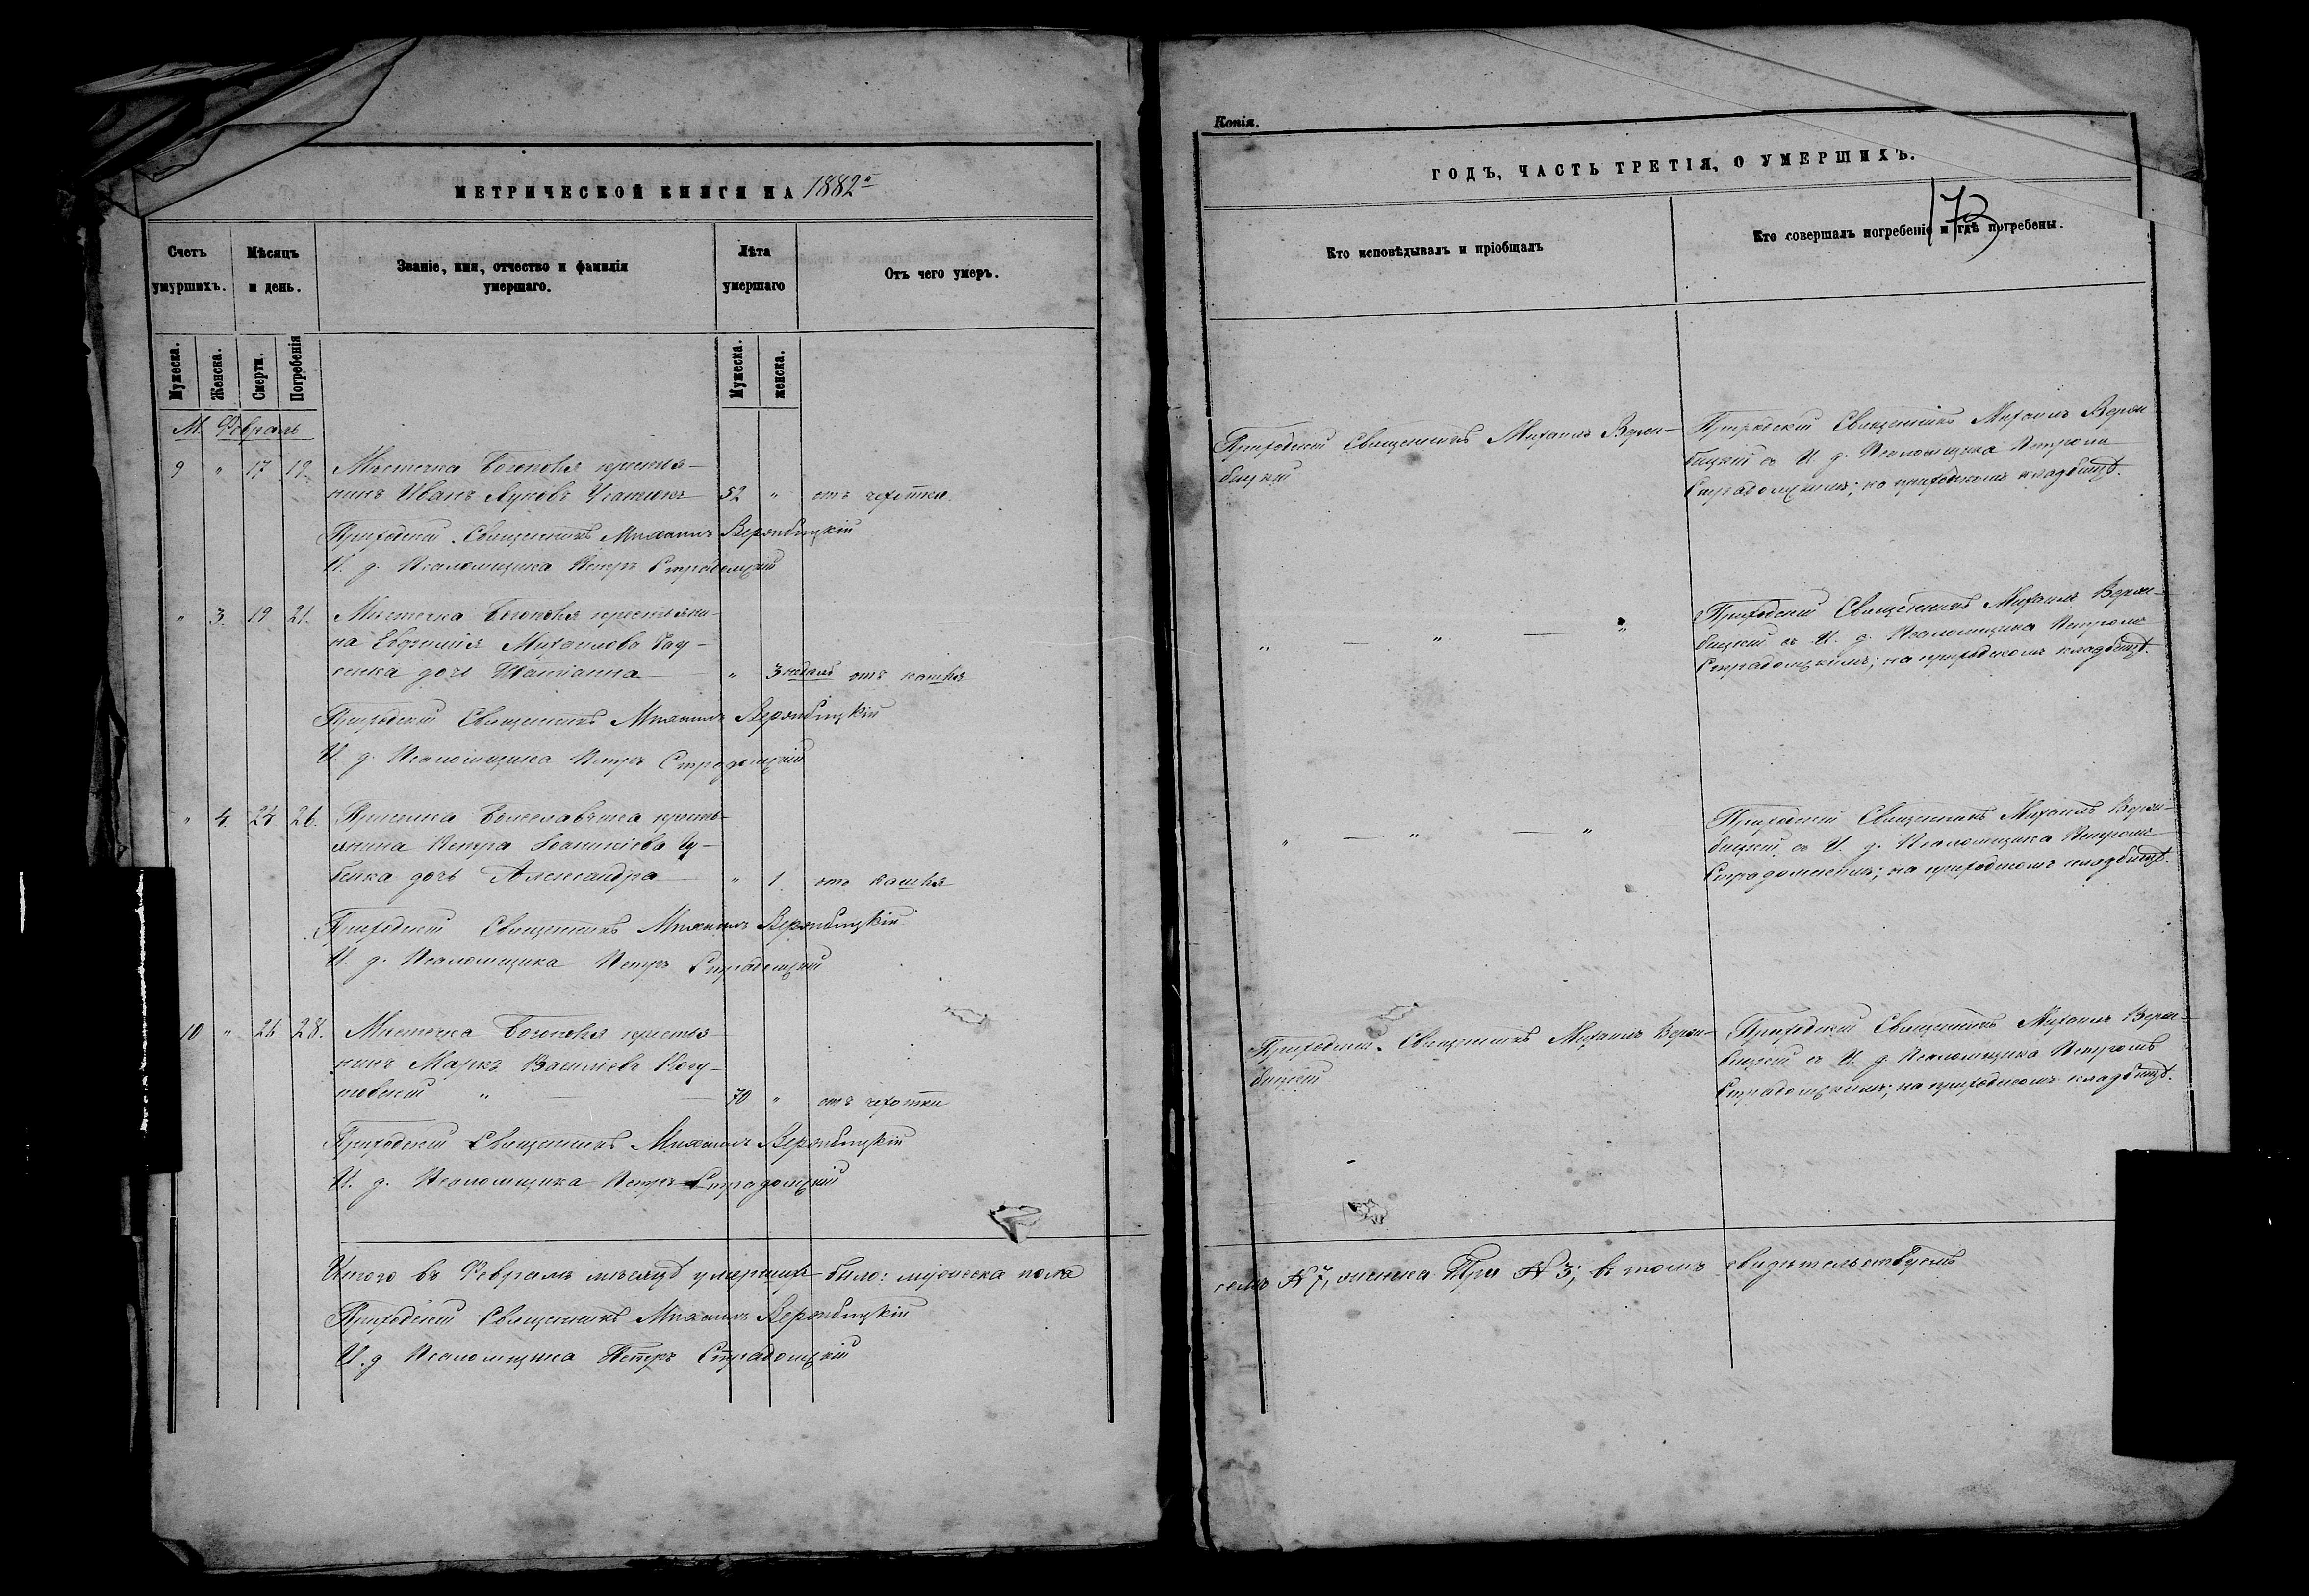 МЕТРИЧЕСКОЙ КНИГИ НА 1882 г
Счетъ умуршихъ.
Мѣсяцъ и день.
Званіе, имя, отчество и фамилія умершаго.
Лѣта умершаго
Отъ чего умеръ.
Мужеска.
Женска.
Смерти.
Погребенія
Мужеска.
женска.
М. Февраль
9 " 17 19. Мистечка Богополя крестья-
нинъ Иванъ Луковъ 52 " отъ чахотки.
Приходскій Священникъ Михаилъ Вержбицкій
И. д. Псаломщика Петръ Страдомскій
" 3. 19 21. Мистечка Богополя крестьяни-
на Евфимія Михайлова
дочь Татіанна " 3 недѣль отъ кашля
Приходскій Священникъ Михаилъ Вержбицкій
И. д. Псаломщика Петръ Страдомскій
" 4. 24 26. крестья-
янина Петра
дочь Александра " 1. отъ кашля
Приходскій Священникъ Михаилъ Вержбицкій
И. д. Псаломщика Петръ Страдомскій
10 " 26 28. Мистечка Богополя крестья-
нинъ Марко Василіевъ
70 " отъ чахотки
Приходскій Священникъ Михаилъ Вержбицкій
И. д. Псаломщика Петръ Страдомскій
Итого въ Февралѣ мѣсяцѣ умершихъ было: мужеска пола
Приходскій Священникъ Михаилъ Вержбицкій
И. д. Псаломщика Петръ Страдомскій
Копія.
ГОДЪ, ЧАСТЬ ТРЕТІЯ, О УМЕРШИХЪ.
173
Кто исповѣдывалъ и пріобщалъ
Кто совершалъ погребеніе и гдѣ погребены.
Приходскій Священникъ Михаилъ Верж-
бицкій
Приходскій Священникъ Михаилъ Верж-
бицкій съ И. д. Псаломщика Петромъ
Страдомскимъ; на приходскомъ кладбищѣ.
" — " — "
Приходскій Священникъ Михаилъ Верж-
бицкій съ И. д. Псаломщика Петромъ
Страдомскимъ; на приходскомъ кладбищѣ.
" — " — "
Приходскій Священникъ Михаилъ Верж-
бицкій съ И. д. Псаломщика Петромъ
Страдомскимъ; на приходскомъ кладбищѣ.
Приходскій Священникъ Михаилъ Верж-
бицкій
Приходскій Священникъ Михаилъ Верж-
бицкій съ И. д. Псаломщика Петромъ
Страдомскимъ; на приходскомъ кладбищѣ.
семь № 7, женска три № 3; въ томъ свидѣтельствуемъ